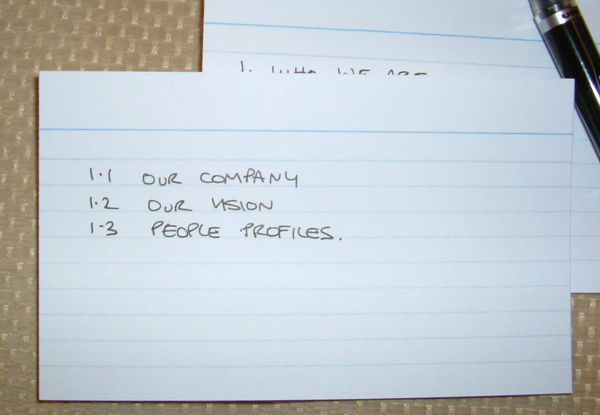 1. WHO WE ARE
1.1 OUR COMPANY
1.2 OUR VISION
1.3 PEOPLE PROFILES.